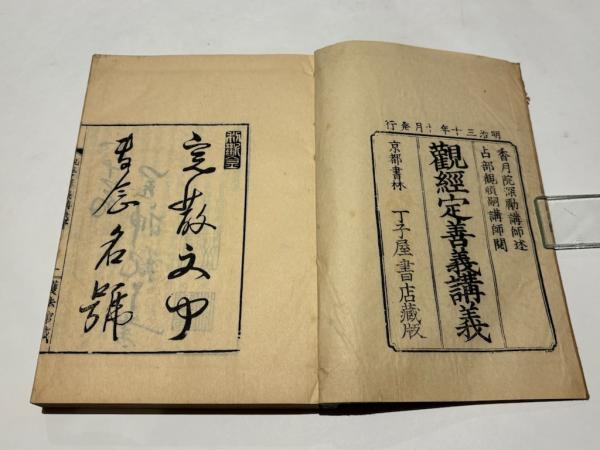 明治三十年十月發行
香月院深勵講師述
占部觀順嗣講師閲
觀經定善義講義
京都書林 丁子屋書店藏版
定散文中
専念名號